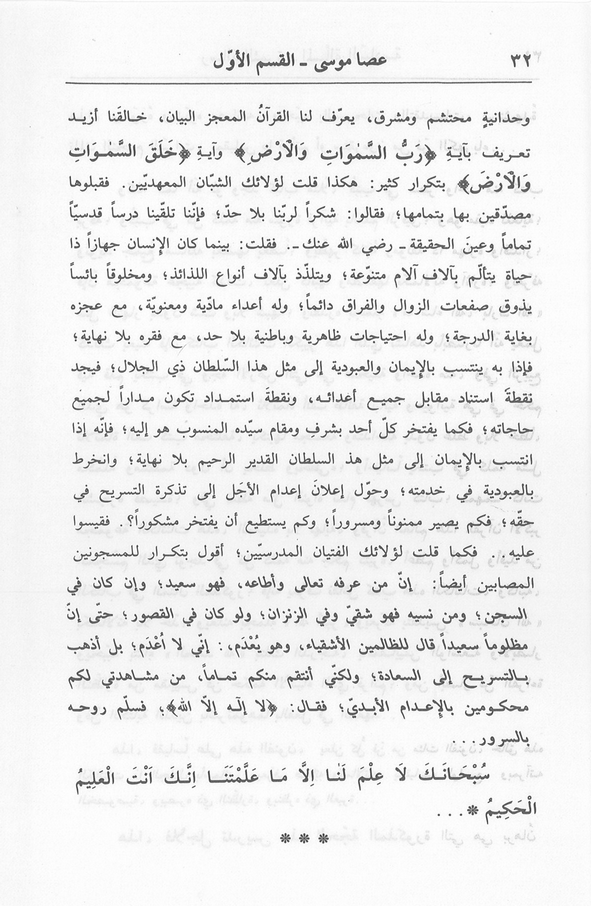 ٣٢
عصا موسى ـ القسم الأوّل
وحدانيةٍ محتشم ومشرق، يعرّف لنا القرآنُ المعجز البيان، خـالقَنا أزيـد
تعـريف بآيـةِ ﴿رَبُّ السَّمٰوَاتِ وَالْاَرْضِ﴾ وآيـةِ ﴿خَلَقَ السَّمٰوَاتِ
وَالْاَرْضَ﴾ بتكرار كثير: هكذا قلت لاؤلائك الشبّان المعهديّين. فقبلوها
مصدّقين بها بتمامها؛ فقالوا: شكراً لربّنا بلا حدّ؛ فإنّنا تلقّينا درساً قدسيّاً
تماماً وعينَ الحقيقة ـ رضي الله عنك ـ. فقلت: بينما كان الإنسان جهازاً ذا
حياة يتألّم بآلاف آلام متنوّعة؛ ويتلذّذ بآلاف أنواع اللذائذ؛ ومخلوقاً بائساً
يذوق صفعات الزوال والفراق دائماً؛ وله أعداء مادّية ومعنويّة، مع عجزه
بغاية الدرجة؛ وله احتياجات ظاهرية وباطنية بلا حد، مع فقره بلا نهاية؛
فإذا به ينتسب بالإيمان والعبودية إلى مثل هذا السّلطان ذي الجلال؛ فيجد
نقطةَ استناد مقابل جميـع أعدائـه، ونقطةَ استمـداد تكون مـداراً لجميع
حاجاته؛ فكما يفتخر كلّ أحد بشرفِ ومقام سيّده المنسوب هو إليه؛ فإنّه إذا
انتسب بالإيمان إلى مثل هذ السلطان القدير الرحيم بلا نهاية؛ وانخرط
بالعبودية في خدمته؛ وحوّل إعلانَ إعدام الأجَل إلى تذكرة التسريح في
حقّه؛ فكم يصير ممنوناً ومسروراً؛ وكم يستطيع أن يفتخر مشكوراً؟. فقيسوا
عليه.. فكما قلت لاؤلائك الفتيان المدرسيّين؛ أقول بتكـرار للمسجونين
المصابين أيضاً: إنّ من عرفه تعالى وأطاعه، فهو سعيد؛ وإن كان في
السجن؛ ومن نسيه فهو شقيّ وفي الزنزان؛ ولو كان في القصور؛ حتّى إنّ
مظلوماً سعيداً قال للظالمين الأشقياء، وهو يُعْدَم،: إنّي لا اُعْدَم؛ بل أذهب
بالتسريح إلى السعادة؛ ولكنّي أنتقم منكم تمـاماً، من مشاهدتي لكم
محكومين بالإعدام الأبديّ؛ فقال: ﴿لا إلٰه إلاّ الله﴾؛ فسلّم روحـه
بالسرور...
سُبْحَانَـكَ لَا عِلْمَ لَنَا اِلَّا مَا عَلَّمْتَنَـا اِنَّـكَ اَنْتَ الْعَلِيمُ
الْحَكِيمُ * ...
* * *